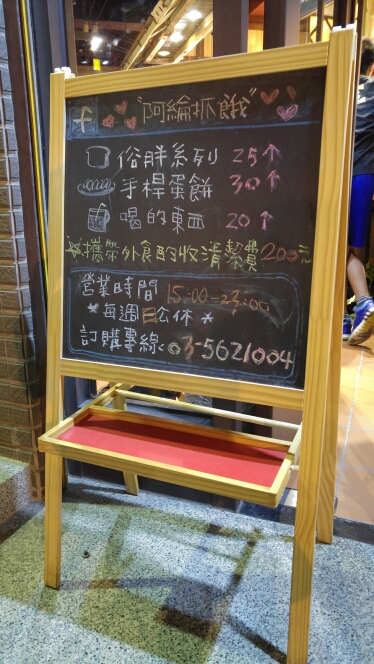 f "阿綸抓餓"
俗胖系列 25↑
手桿蛋餅 30↑
喝的東西 20↑
☆攜帶外食酌收清潔費200元
營業時間 15:00-23:00
*每週日公休*
訂購專線:03-5621004